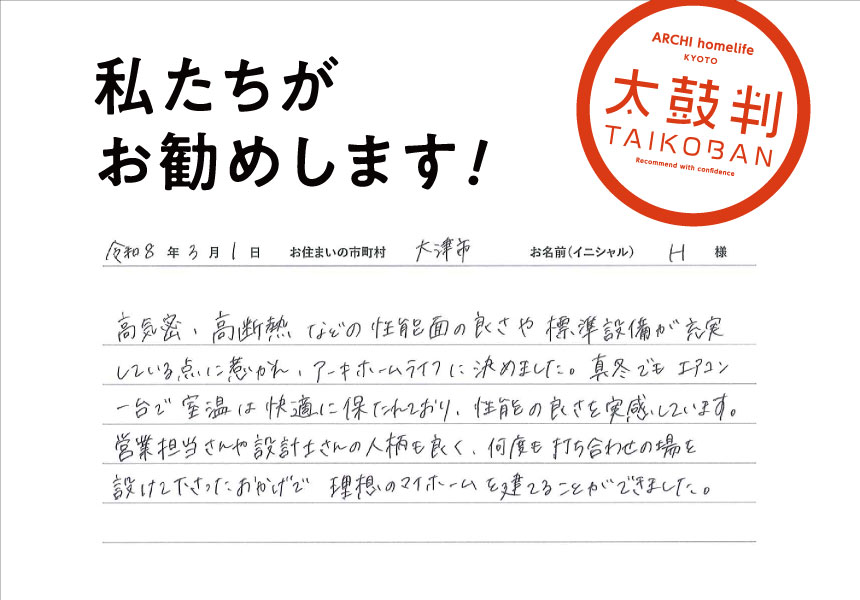 私たちが
お勧めします!
ARCHI homelife
KYOTO
太鼓判
TAIKOBAN
Recommend with confidence
令和8年3月1日 お住まいの市町村 大津市 お名前(イニシャル) H 様
高気密、高断熱などの性能面の良さや標準設備が充実
している点に惹かれ、アーキホームライフに決めました。真冬でもエアコン
一台で室温は快適に保たれており、性能の良さを実感しています。
営業担当さんや設計士さんの人柄も良く、何度も打ち合わせの場を
設けて下さったおかげで理想のマイホームを建てることができました。